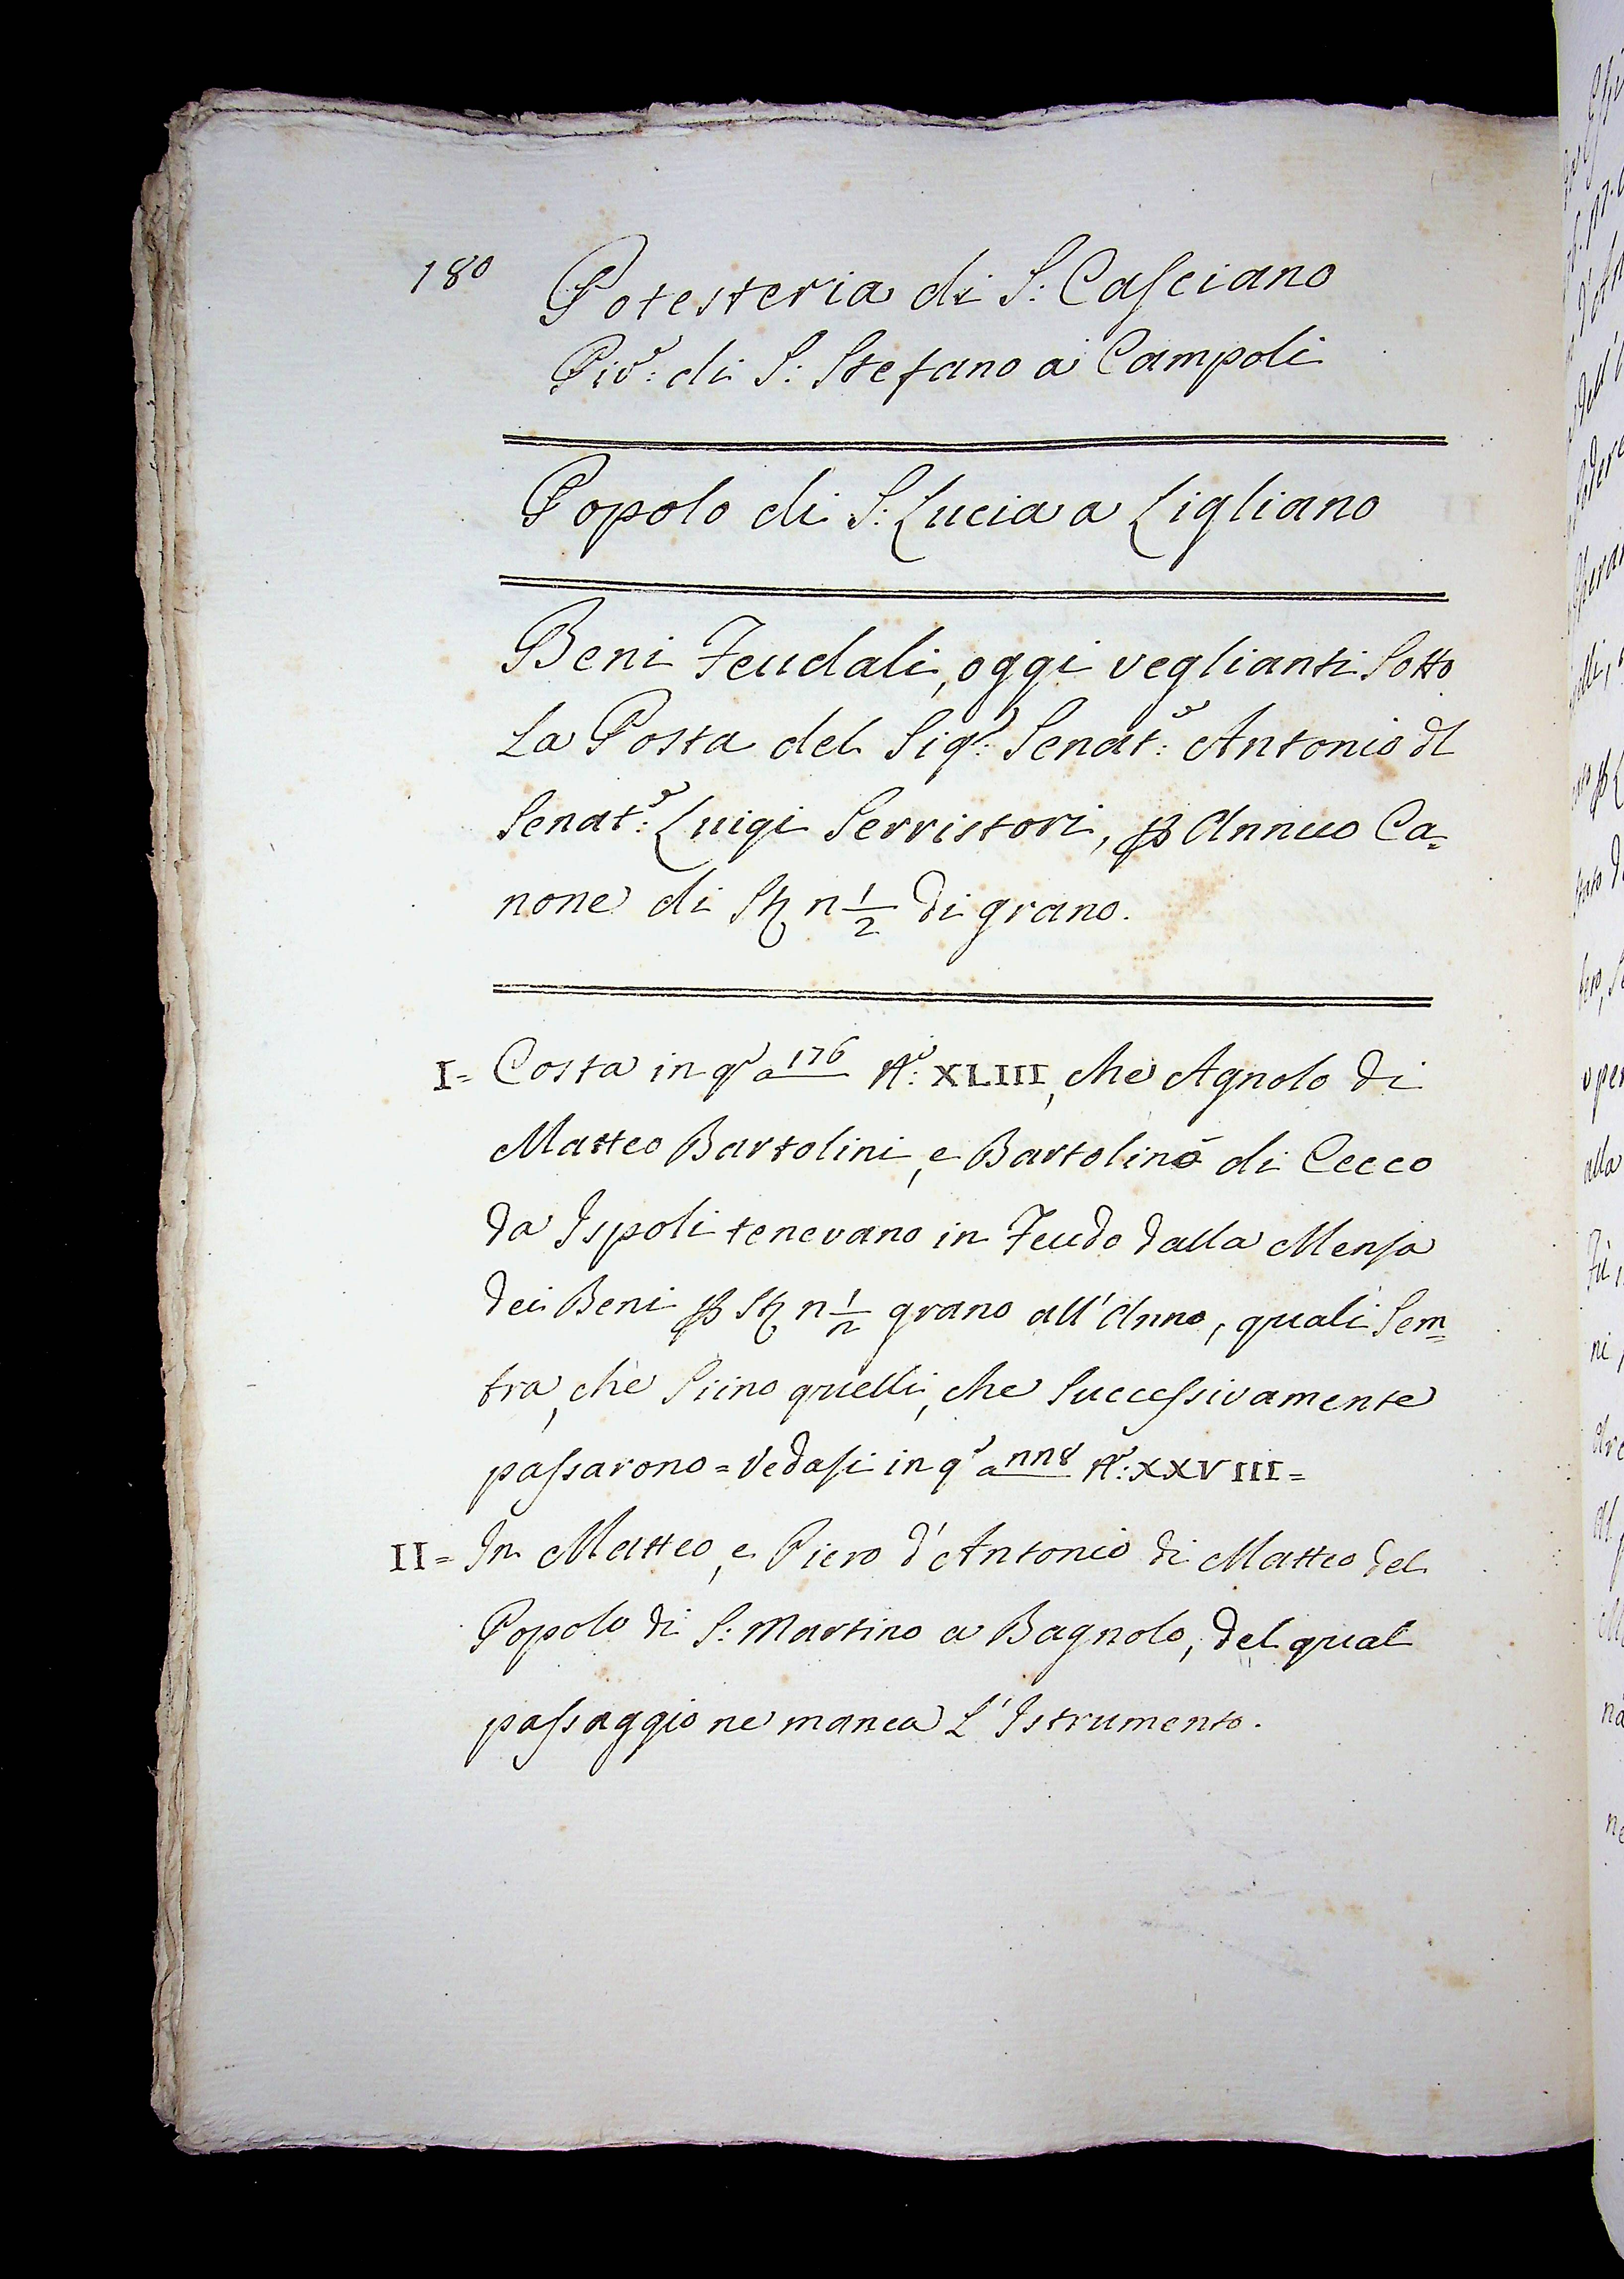 180
Potesteria di S: Casciano
Piv.e: di S: Stefano a Campoli
Popolo di S: Lucia a Ligliano
Beni Feudali, oggi veglianti Sotto
La Posta del Sig.r: Senat.e: Antonio dl
Senat.e: Luigi Serristori, ꝑ Annuo Ca=
none di n 1/2 di grano.
I= Costa in q.o a 176 N.o: XLIII, che Agnolo di
Matteo Bartolini, e Bartolino di Cecco
da Ispoli tenevano in Feudo dalla Mensa
dei Beni ꝑ n grano all'Anno, quali Sem=
bra, che Siino quelli, che Successivamente
passarono = Vedasi in q.o a N.o: XXVIII=
II= In Matteo, e Piero d'Antonio di Matteo del
Popolo di S: Martino a Bagnolo, del qual
passaggio ne manca L'Istrumento.